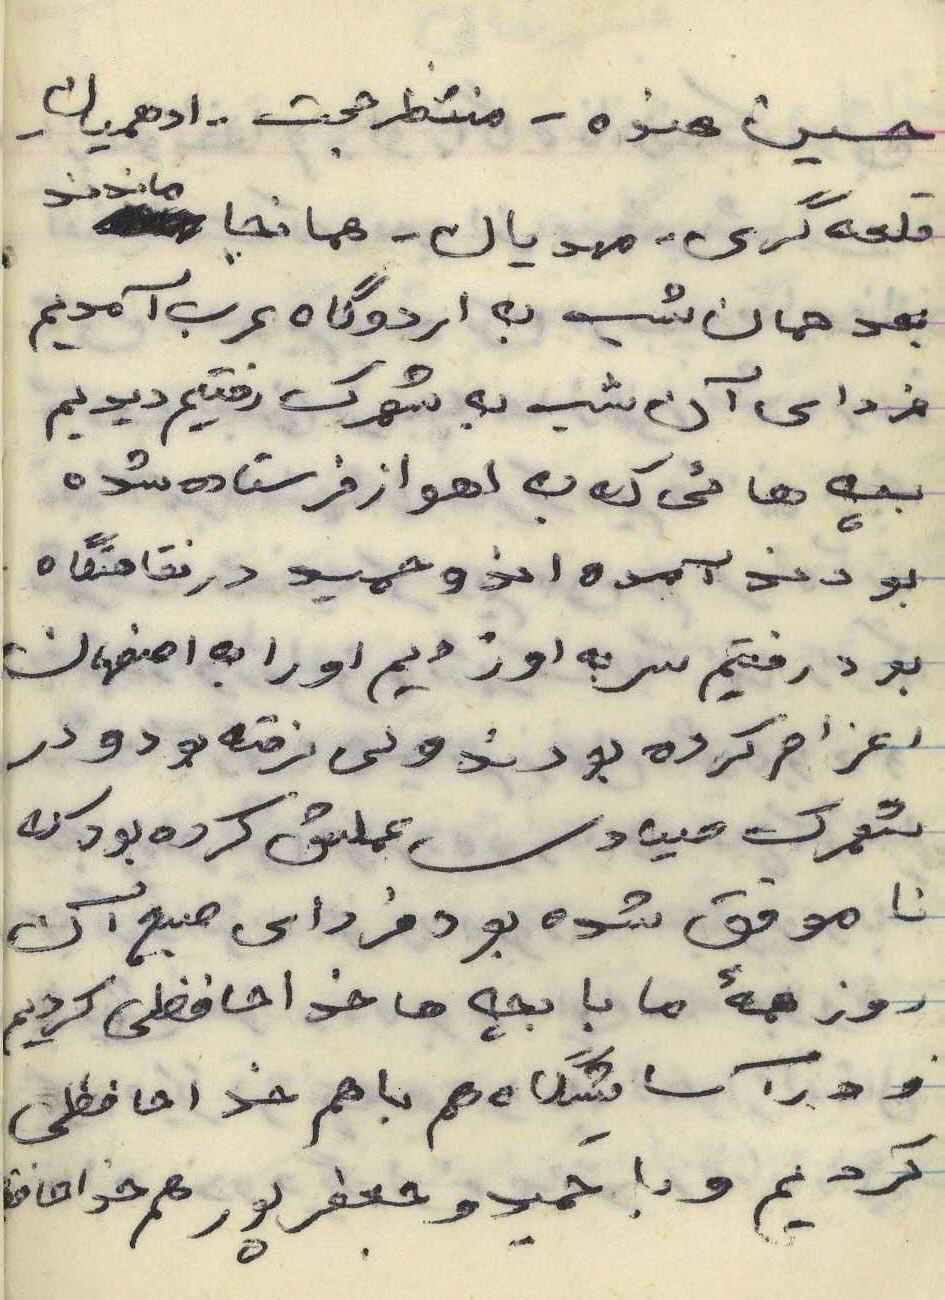 حسین هنده - منتظر حجت - ادهمیان -
قلعه گری - مهدیان - همانجا ماندند
بعد همان شب به اردوگاه عرب آمدیم
فردای آن شب به شهرک رفتیم دیدیم
بچه هائی که به اهواز فرستاده شده
بودند آمده اند و حمید در نقاهتگاه
بود رفتیم سر به او زدیم او را به اصفهان
اعزام کرده بودند ولی نرفته بود و در
شهرک صیادی عملش کرده بود که
نا موفق شده بود فردای صبح آن
روز همهٔ ما با بچه ها خداحافظی کردیم
و در آسایشگاه هم با هم خداحافظی
کردیم و با حمید و جعفرپور هم خداحافظ